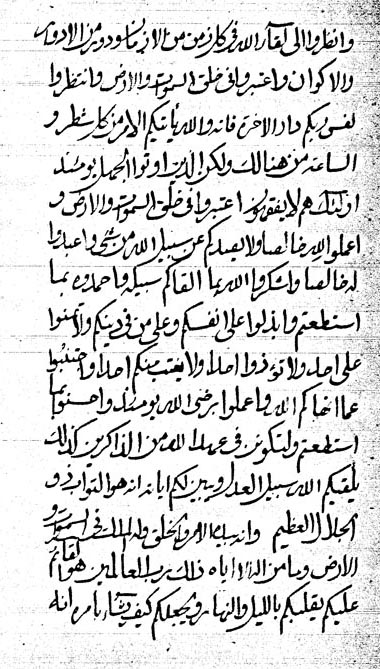 وانظروا الى لقآء الله فى كل زمن من الازمان ودور من الادوار
والاكوان واعتبروا فى خلق السموات والارض وانتظروا
لنفس ربكم دار الاخرة فانه والله يأتيكم الامر من كل شطر و
الساعة من هنالك ولكن الذين اوتوا الجهل يومئذ
اولئك هم لا يفقهون اعتبروا فى خلق السموات والارض و
اعملوا لله خالصا ولا يصدكم عن سبيل الله من شىء واعبدوا
له خالصا واشكروا الله بما القاكم سبيله واحمدوه بما
استطعتم وابذلوا على انفسكم وعلى من فى دينكم ولا تمنوا
على احد ولا تؤذوا احدا ولا يغتب بينكم احدا واجتنبوا
عما انهاكم الله واعملوا برضى الله يومئذ واحسنوا بما
استطعتم ولتكونن فى عهد الله من الذاكرين كذلك
يلقيكم الله سبيل العدل ويبين لكم اياته انه هو التواب ذو
الجلال العظيم وان بيده الامر والخلق وله الملك فى السموات و
الارض وما من اله الا اياه ذلك رب العالمين هو القائم
عليكم يقلبكم بالليل والنهار ويجعلكم كيف يشاء بامره انه